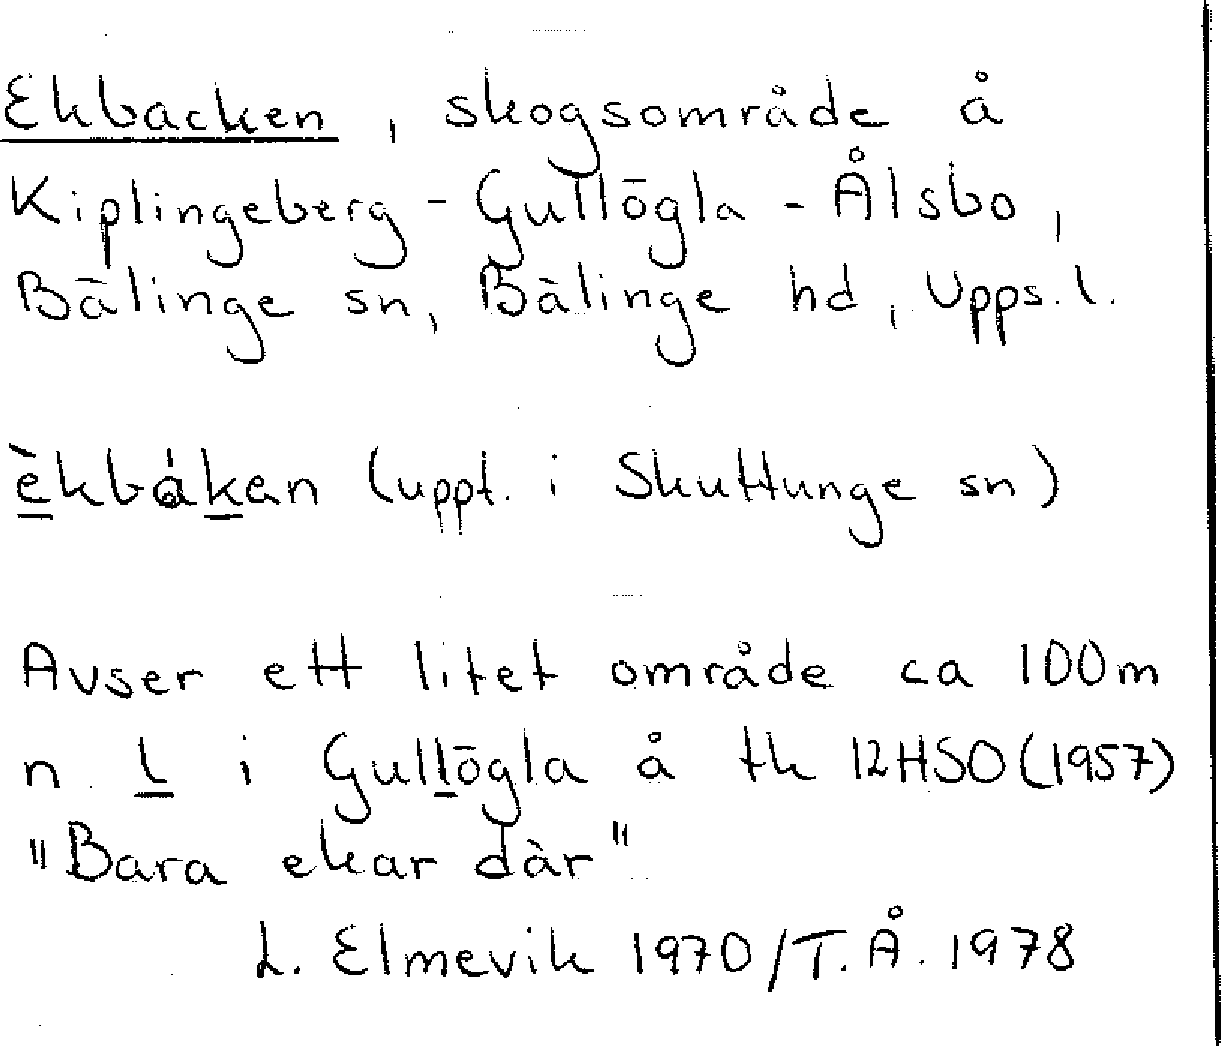 Ekbacken, skogsområde å
Kiplingeberg - Gullögla - Ålsbo,
Bälinge sn, Bälinge hd, Upps. l.
èkbákan (uppt. i Skuttunge sn)
Avser ett litet område ca 100m
n l i Gullögla å tk 12HSO (1957)
"Bara ekar där".
L. Elmevik 1970/T.Å. 1978